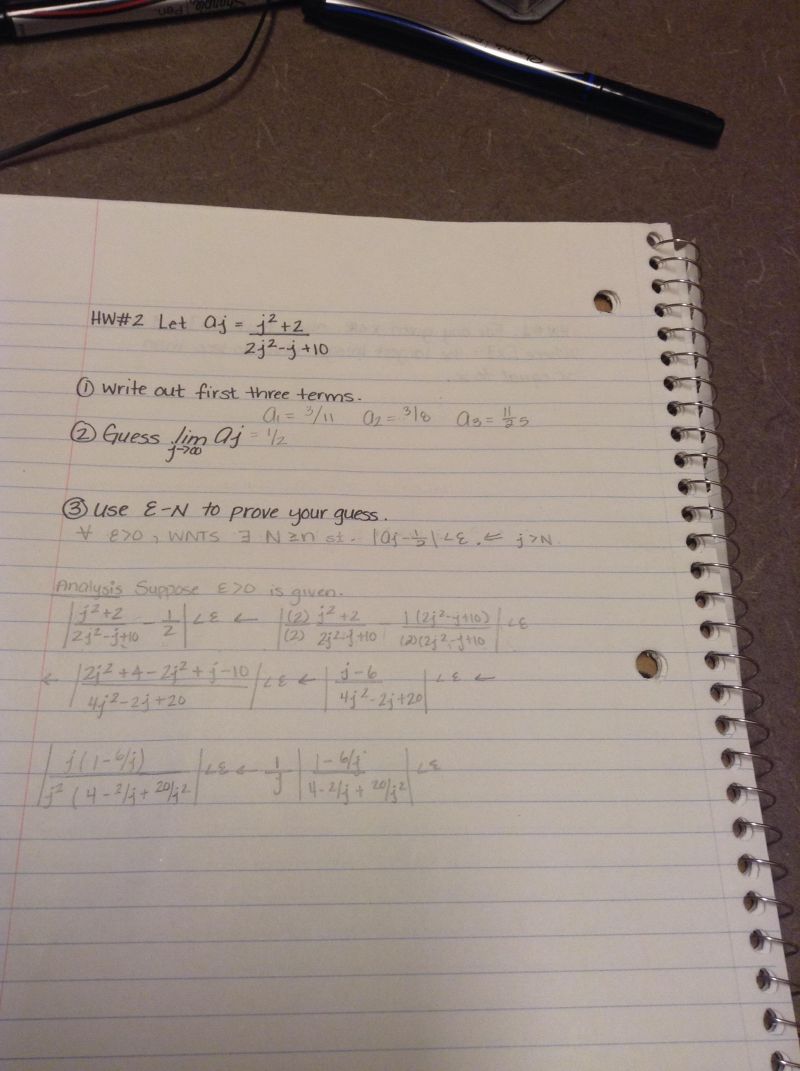 Sharpie Pen.
HW#2 Let aj = j²+2 / 2j²-j+10
① Write out first three terms.
a₁ = 3/11 a₂ = 3/8 a₃ = 11/25
② Guess lim j→∞ aj = 1/2
③ Use ε-N to prove your guess.
∀ ε>0, WNTS ∃ N≥n st. |aj - 1/2| <ε. ⇐ j>N
Analysis Suppose ε>0 is given.
|j²+2 / 2j²-j+10 - 1/2| <ε ← |(2) j²+2 / (2) 2j²-j+10 - 1(2j²-j+10) / (2)(2j²-j+10| <ε
← |2j²+4-2j²+j-10 / 4j²-2j+20| <ε ← |j-6 / 4j²-2j+20| <ε ←
|j(1-6/j) / j²(4-2/j+20/j²| <ε ← 1/j |1-6/j / 4-2/j+20/j²| <ε